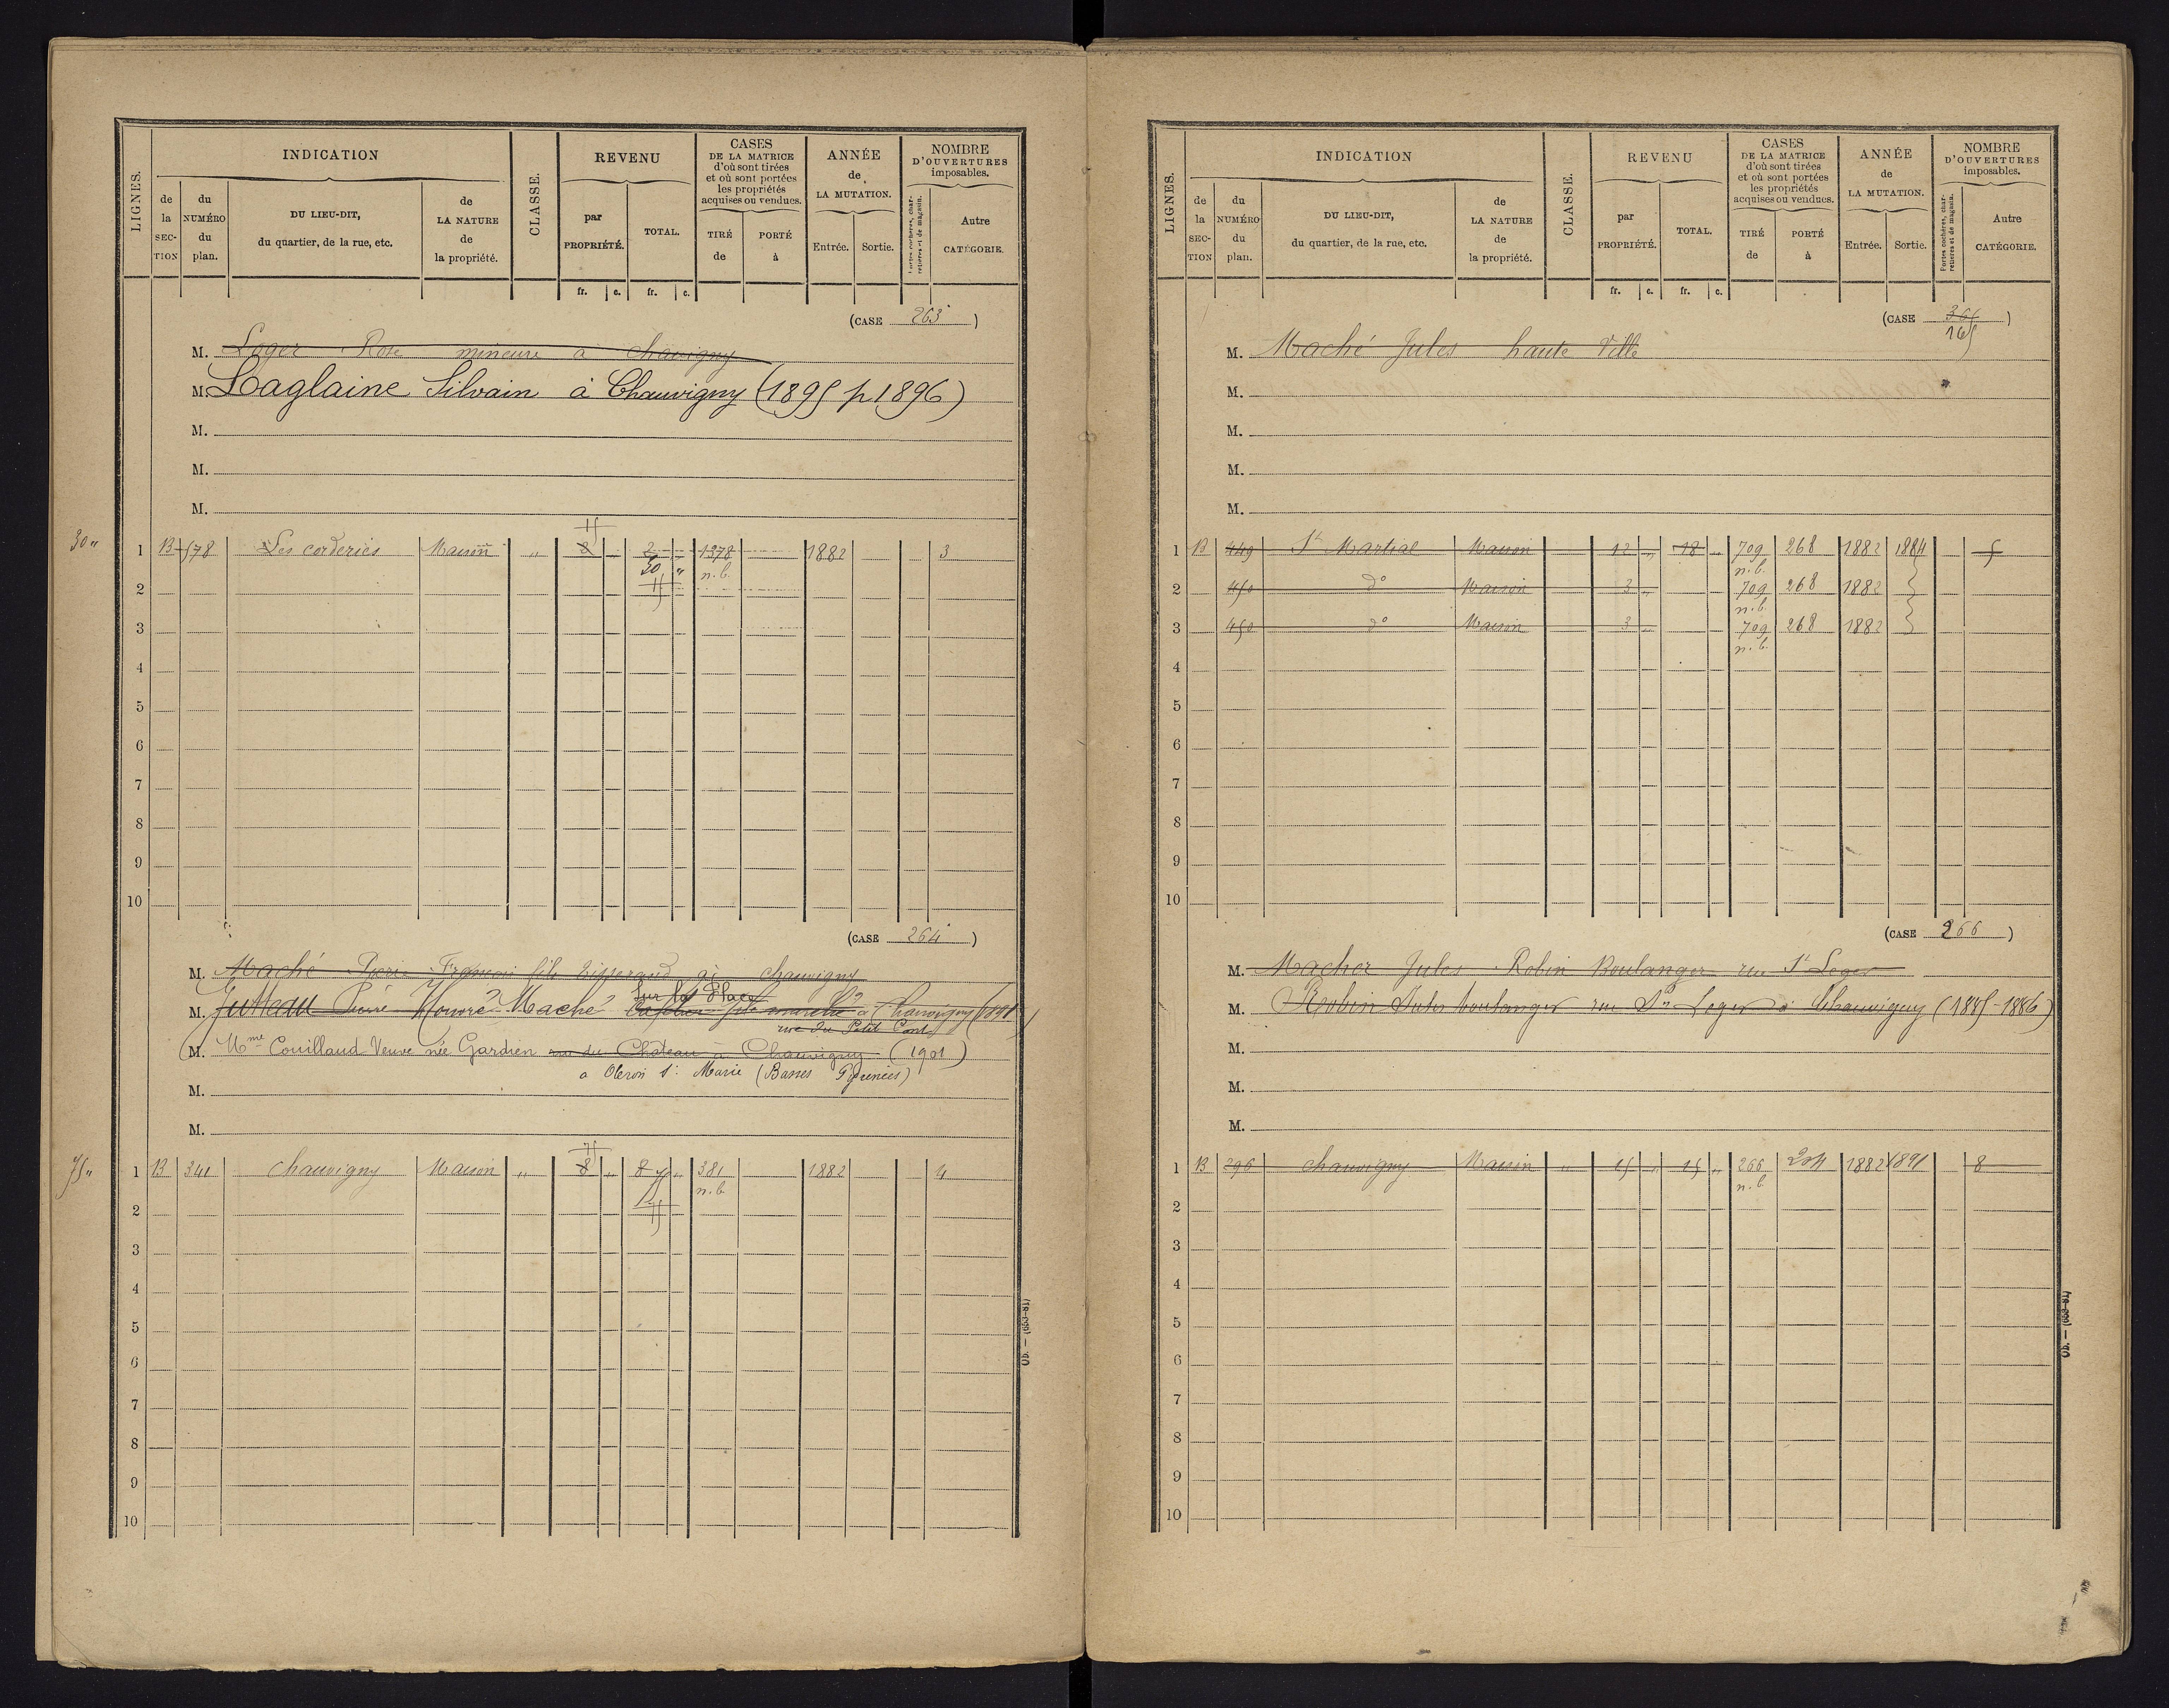 LIGNES.
INDICATION
CLASSE.
REVENU
CASES
DE LA MATRICE
d'où sont tirées
et où sont portées
les propriétés
acquises ou vendues.
ANNÉE
de
LA MUTATION.
NOMBRE
D'OUVERTURES
imposables.
de la SECTION
du NUMÉRO du plan.
DU LIEU-DIT,
du quartier, de la rue, etc.
de LA NATURE de la propriété.
par PROPRIÉTÉ.
TOTAL.
TIRÉ de
PORTÉ à
Entrée.
Sortie.
Portes cochères, charretières et de magasin.
Autre CATÉGORIE.
fr. c. fr. c.
(CASE 263)
M. Loger Rose mineure à Chauvigny
M. Laglaine Silvain à Chauvigny (1895 p 1896)
M.
M.
M.
15
30 " 1 B 578 Les corderies Maison " 8 " 2 1378 1882 3
30 " n.b.
2 15
3
4
5
6
7
8
9
10
(CASE 264)
M. Maché Pierre François fils Tisserand à chauvigny
Sur la Place
M. Jutteau Pierre Honoré Maché à Chauvigny (1891)
rue du Petit Pont
M. Mme Couillaud Veuve née Gardien rue du Château à Chauvigny (1901)
a Oleron Ste Marie (Basses Pyrénées)
M.
M.
75
75 " 1 B 341 chauvigny Maison " 8 " 8 75 " 381 1882 4
n.b.
2 75
3
4
5
6
7
8
9
10
Ob. — (699-81)
LIGNES.
INDICATION
CLASSE.
REVENU
CASES
DE LA MATRICE
d'où sont tirées
et où sont portées
les propriétés
acquises ou vendues.
ANNÉE
de
LA MUTATION.
NOMBRE
D'OUVERTURES
imposables.
de la SECTION
du NUMÉRO du plan.
DU LIEU-DIT,
du quartier, de la rue, etc.
de LA NATURE de la propriété.
par PROPRIÉTÉ.
TOTAL.
TIRÉ de
PORTÉ à
Entrée.
Sortie.
Portes cochères, charretières et de magasin.
Autre CATÉGORIE.
fr. c. fr. c.
(CASE 365)
165
M. Maché Jules haute Ville
M.
M.
M.
M.
1 B 449 St Martial Maison 12 " 18 " 709 268 1882 1884 5
n.b.
2 450 do Maison 3 " 709 268 1882
n.b.
3 450 do Maison 3 " 709 268 1882
n.b.
4
5
6
7
8
9
10
(CASE 266)
M. Macher Jules Robin Boulanger rue St Leger
M. Robin Jules boulanger rue St Leger à Chauvigny (1885-1886)
M.
M.
M.
1 B 296 chauvigny Maison " 15 " 15 " 266 204 1882 1891 8
n.b.
2
3
4
5
6
7
8
9
10
Ob. — (699-81)